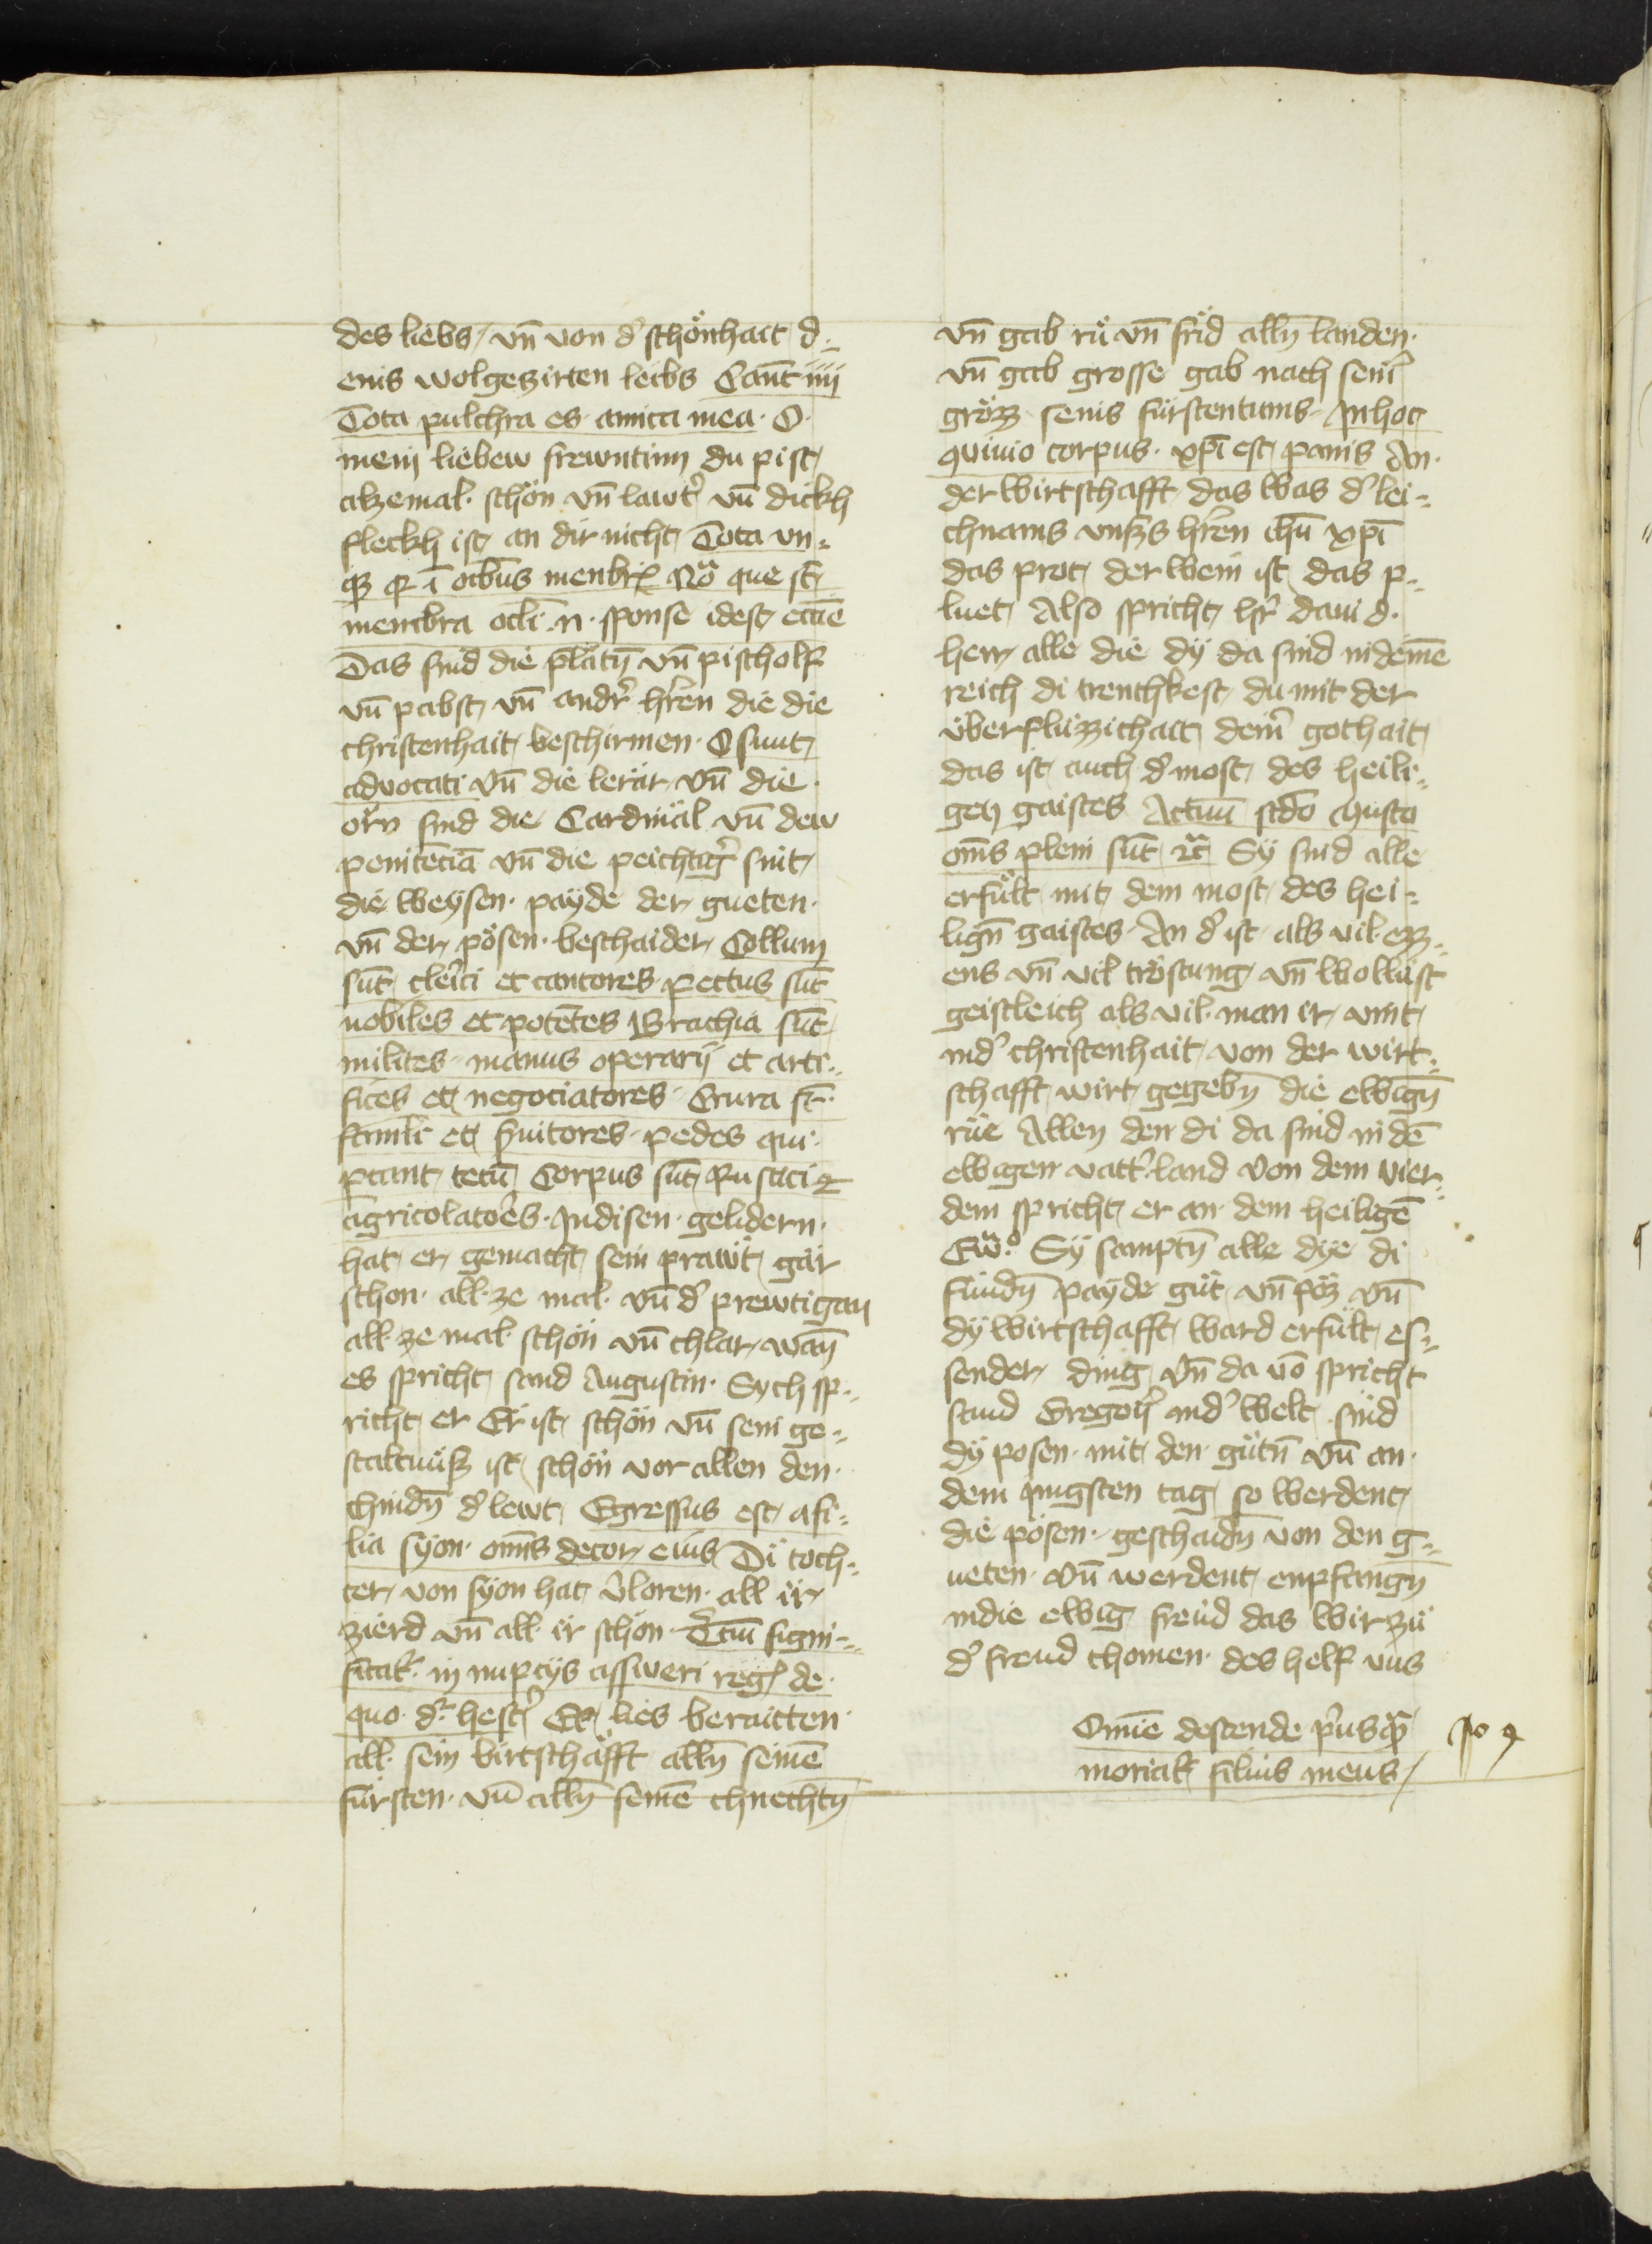 des liebs / vn̄ von d' schönhait d⸗
enis wolgezirten leibs Cant̄ iiij
Tota pulchra es amica mea · O ·
mein liebew frewntinn du pist /
alzemal · schön vn̄ lawt' vn̄ dickh
fleckh ist an dir nicht / Tota vn⸗
membra ocli · n · sponse idest
Das sind die platn̄ vn̄ pischolf
vn̄ pabst / vn̄ andr' hr̄en die die
christenhait / beschirmen · O sunt /
advocati vn̄ die lerär vn̄ die ·
orn sind die Cardinäl vn̄ dew
penitēciā vn̄ die peichtig' sint /
die weÿsen · paÿde der gueten ·
vn̄ der pösen · beschaider / Collum
sūt / cler̄ici et cantores pectus sūt
nobiles et potētes Brachia sūt
milites · manus operarÿ et arti⸗
fices et negociatores · Crura st̄ ·
famli et s'uitores · pedes qui ·
ptant / tetū Corpus sūt Rustici et
agricolatōres · Jndisen · gelidern ·
hat / er gemacht / sein prawt / gar
schon · all · ze mal · vn̄ d' prewtigan
all · ze mal schön vn̄ chlar / wan̄
es spricht / sand Augustin · Sych sp⸗
richt / er Er ist / schön vn̄ sein ge⸗
staltnüß ist / schön vor allen den ·
chindn̄ d' lewt / Egressus est / a fi⸗
lia sÿon · om̄s decor / eius Di toch⸗
ter / von sÿon hat / v'loren · all ir /
zierd vn̄ all · ir schön · T'cīu signi⸗
ficat' · in nupcÿs assweri reg' de ·
quo · d'r hest' Er / lies beraitten
all · sein birtschafft alln̄ seinē
fürsten · vn̄ alln̄ seinē chnechtn̄
vn̄ gab rü vn̄ frid alln̄ landen ·
vn̄ gab grosse gab nach sein'
größ · senis fürstentums · Jn hoc
9uiuio corpus · xp̄i est / panis An ·
der wirtschafft / das was d' lei⸗
chnams vnßs hr̄en ihū xp̄i
das prot / der wein ist / das p⸗
luet / Also spricht / hr' daui d ·
herr / alle die dÿ da sind in deinē
reich di trenchkest / du mit der
überflüzzichait / dein' gothait /
das ist / auch d' most / des heili⸗
gen gaistes Actuū sc̄do Musto
om̄s pleni sūt / rc̄ Sÿ sind alle
erfült mit / dem most / des hei⸗
lign̄ gaistes · An d' ist als vil ezz⸗
ens vn̄ vil tröstung / vn̄ wollüst
geistleich als vil · man ir / vint /
ind' christenhait / von der wirt⸗
schafft / wirt / gegebn̄ die ewign̄
rüe Allen den di da sind in dē
ewigen vatt'land Von dem vier⸗
dem spricht / er an dem heiligē
Ew̄o Sÿ samptn̄ alle dÿe di
fundn̄ paÿde güt vn̄ pöz vn̄
dÿ wirtschafft / ward erfült / es⸗
sender ding / vn̄ da vō spricht
sand Gregori' ind' welt / sind
dÿ posen · mit / den gütn̄ vn̄ an ·
dem jungsten tag / so werdent /
die pösen · geschaidn̄ von den g⸗
ueten · vn̄ werdent / enpfangn̄
in die ewig freüd das wir zü
d' freud chomen · des helf vns
Dn̄e descende p'usq̄
moriat' filius meus /
Jo 4